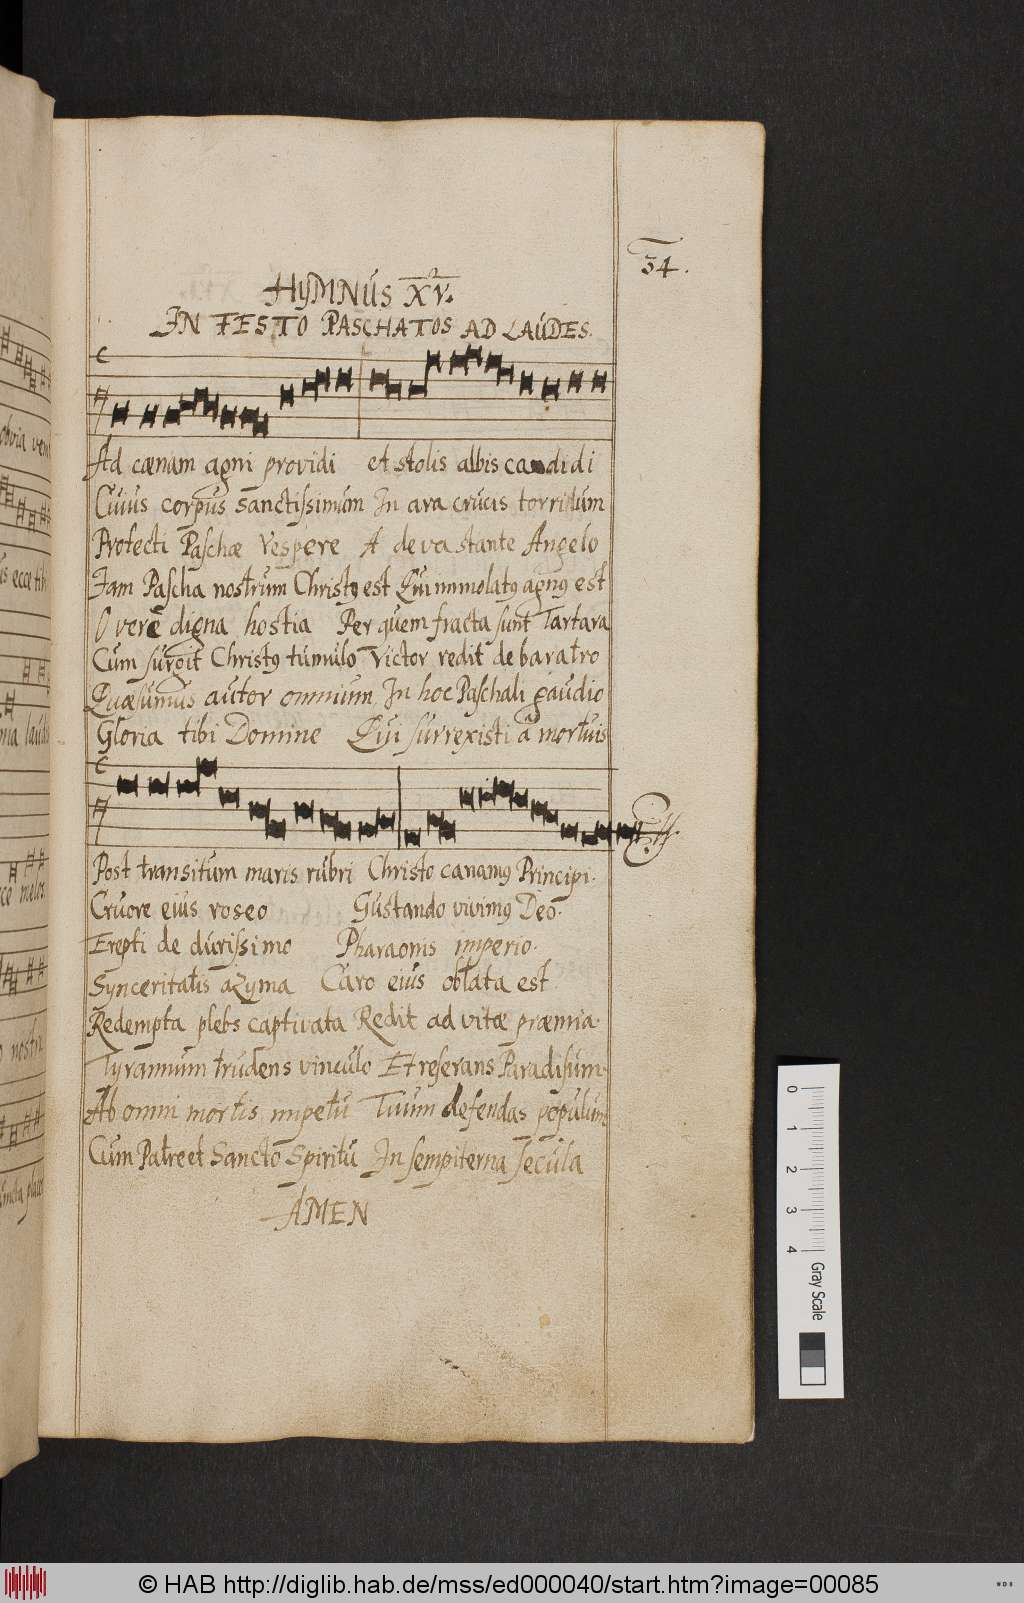 34.
HYMNUS XV.
IN FESTO PASCHATOS AD LAUDES.
Ad cænam agni providi et stolis albis candidi
Cuius corpus sanctissimum In ara crucis torridum
Protecti Paschæ Vespere A devastante Angelo
Iam Pascha nostrum Christꝰ est Qui immolatꝰ agnꝰ est
O verè digna hostia Per quem fracta sunt Tartara
Cum surgit Christꝰ tumulo Victor redit de baratro
Quæsumus autor omnium In hoc Paschali gaudio
Gloria tibi Domine Qui surrexisti à mortuis
Post transitum maris rubri Christo canamꝰ Principi.
Cruore eius roseo Gustando vivimꝰ Deo.
Erepti de durissimo Pharaonis imperio.
Synceritatis azyma Caro eius oblata est
Redempta plebs captivata Redit ad vitæ præmia.
Tyrannum trudens vinculo Et reserans Paradisum.
Ab omni mortis impetu Tuum defendas populum
Cum Patre et Sancto Spiritu In sempiterna secula
AMEN
otvia ven
s ecce tibi
ce melos
nostri
0 1 2 3 4 Gray Scale
© HAB http://diglib.hab.de/mss/ed000040/start.htm?image=00085